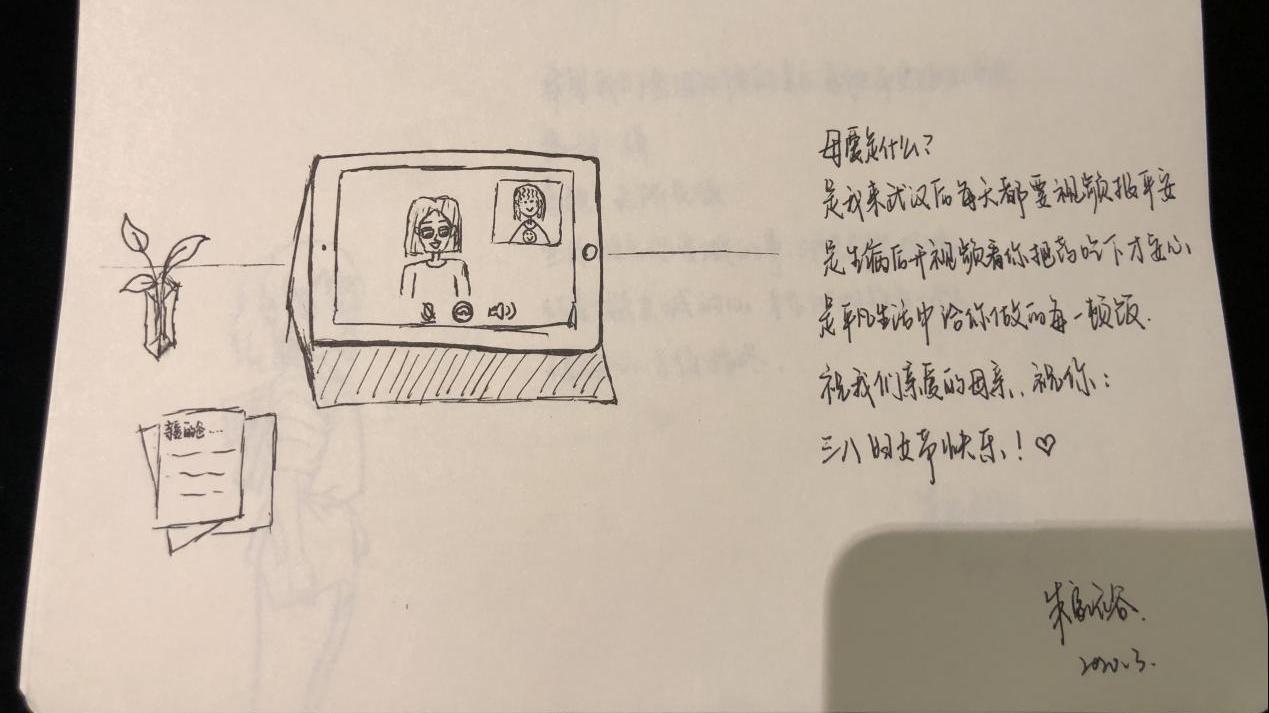 母爱是什么？
是我来武汉后每天都要视频报平安
是生病后开视频看你把药吃下才安心
是平凡生活中给你做的每一顿饭.
祝我们亲爱的母亲，祝你：
三八妇女节快乐！♡
亲爱的爸...
2020.3.